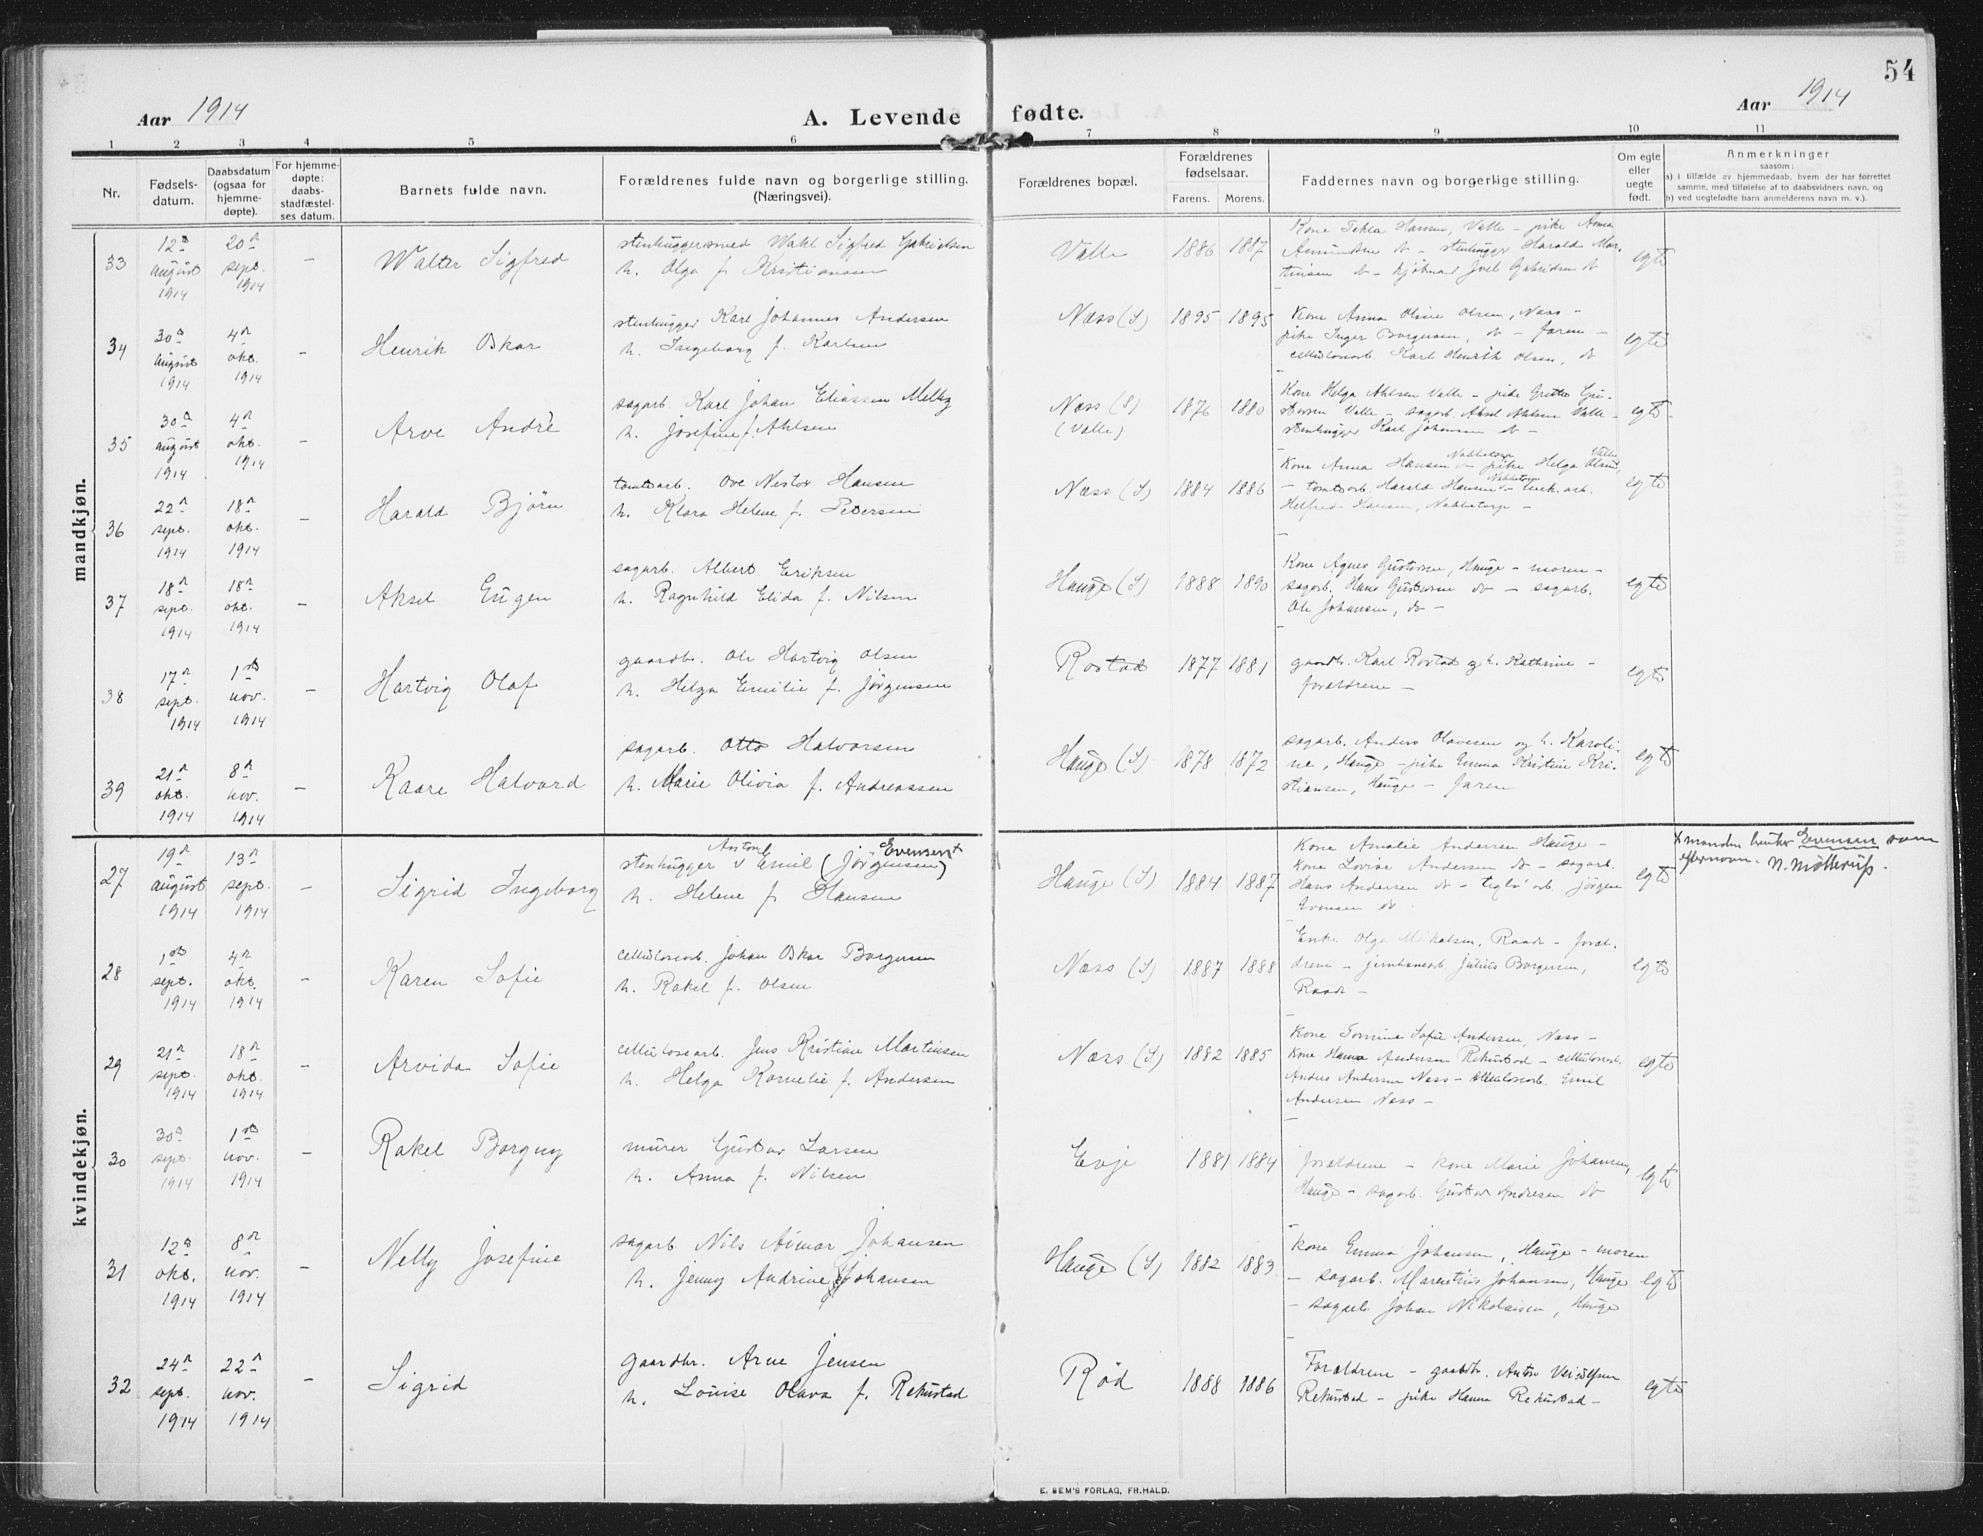 54
Aar 1914
A. Levende fødte.
Aar 1914
1 2 3 4 5 6 7 8 9 10 11
Nr.
Fødsels-
datum.
Daabsdatum
(ogsaa for
hjemme-
døpte).
For hjemme-
døpte:
daabs-
stadfæstel-
ses datum.
Barnets fulde navn.
Forældrenes fulde navn og borgerlige stilling.
(Næringsvei).
Forældrenes bopæl.
Forældrenes
fødselsaar.
Farens. Morens.
Faddernes navn og borgerlige stilling.
Om egte
eller
uegte
født.
Anmerkninger
saasom:
a) i tilfælde av hjemmedaab, hvem der har forrettet
samme, med tilføielse af to daabsvidners navn, og
b) ved uegtefødte barn anmelderens navn m. v.).
mandkjøn.
33
12te august 1914
20de sept. 1914
–
Walter Sigfred
stenhuggersmed Wahl Sigfred Gabrielsen
h. Olga f. Kristiansen
Valle
1886 1887
Kone Tekla Hansen, Valle – pike Anna
Amundsen do – stenhugger Harald Mar-
tinsen do –
egte
34
30te august 1914
4de okt. 1914
–
Henrik Oskar
stenhugger Karl Johannes Andersen
h. Ingeborg f. Karlsen
Næss (S)
1895 1895
Kone Anna Oline Olsen, Næss –
pike Inger Borgersen, do – faren –
cellulosearb. Karl Henrik Olsen, do
egte
35
30te august 1914
4de okt. 1914
–
Arve Andrè
sagarb. Karl Johan Eliassen Melby
h. Josefine f. Ahlsen
Næss (S)
(Valle)
1876 1880
Kone Helga Ahlsen Valle – pike Grethe Gu-
stavsen Valle – sagarb. Aksel Ahlsen Valle –
stenhugger Karl Johansen do –
egte
36
22de sept. 1914
18de okt. 1914
–
Harald Bjørn
tomtearb. Ove Nestor Hansen
h. Klara Helene f. Pedersen
Næss (S)
1884 1886
Kone Anna Hansen Nabbetorp – pike Helga Valle
– tomtearb. Harald Hansen Nabbetorp – arb.
Helfred Hansen, Nabbetorp –
egte
37
18de sept. 1914
18de okt. 1914
–
Aksel Eugen
sagarb. Albert Eriksen
h. Ragnhild Elida f. Nilsen
Hauge (S)
1888 1890
Kone Agnes Gustavsen, Hauge – moren –
sagarb. Hans Gustavsen do – sagarb.
Ole Johansen, do –
egte
38
17de sept. 1914
1ste nov. 1914
–
Hartvig Olaf
gaardbr. Ole Hartvig Olsen
h. Helga Emilie f. Jørgensen
Rostad
1877 1881
gaardbr. Karl Rostad og h. Kathrine –
forældrene –
egte
39
21de okt. 1914
8de nov. 1914
–
Kaare Halvard
sagarb. Otto Halvorsen
h. Marie Olivia f. Andreassen
Hauge (S)
1878 1872
sagarb. Anders Olavesen og h. Karoli-
ne, Hauge – pike Emma Kristine Kri-
stiansen, Hauge – faren
egte
kvindekjøn.
27
19de august 1914
13de sept. 1914
–
Sigrid Ingeborg
stenhugger Anton Emil (Jørgensen) Evensen+
h. Helene f. Hansen
Hauge (S)
1884 1887
Kone Amalie Andersen Hauge –
Kone Lovise Andersen do – sagarb.
Hans Andersen do – teglv. arb. Jørgen
Evensen do.
egte
+ manden bruker Evensen som
efternavn. N. Møllerup.
28
1ste sept. 1914
4de okt. 1914
–
Karen Sofie
cellulosearb. Johan Oskar Borgersen
h. Rakel f. Olsen
Næss (S)
1887 1888
Enke Olga Mikalsen, Raade – foræl-
drene – jernbanearb. Julius Borgersen,
Raade –
egte
29
21de sept. 1914
18de okt. 1914
–
Arvida Sofie
cellulosearb. Jens Kristian Martinsen
h. Helga Kornelie f. Andersen
Næss (S)
1882 1885
Kone Tomine Sofie Andersen, Næss –
Kone Hanna Andersen Rekustad – cellulosearb.
Anders Andersen Næss – cellulosearb. Emil
Andersen Næss –
egte
30
30te sept. 1914
1ste nov. 1914
–
Rakel Borgny
murer Gustav Larsen
h. Anna f. Nilsen
Evje
1881 1884
forældrene – kone Marie Johansen,
Hauge – sagarb. Gustav Andresen do
egte
31
12te okt. 1914
8de nov. 1914
–
Nelly Josefine
sagarb. Nils Aimar Johansen
h. Jenny Andrine Johansen
Hauge (S)
1882 1883
Kone Emma Johansen, Hauge – moren
– sagarb. Marentius Johansen, Hauge
– sagarb. Johan Nikolaisen, Hauge
egte
32
24de sept. 1914
22de nov. 1914
–
Sigrid
gaardbr. Arne Jensen
h. Louise Olava f. Rekustad
Rød
1888 1886
Forældrene – gaardbr. Anton
Rekustad – pike Hanna Rekustad –
egte
E. SEM'S FORLAG, FR.HALD.